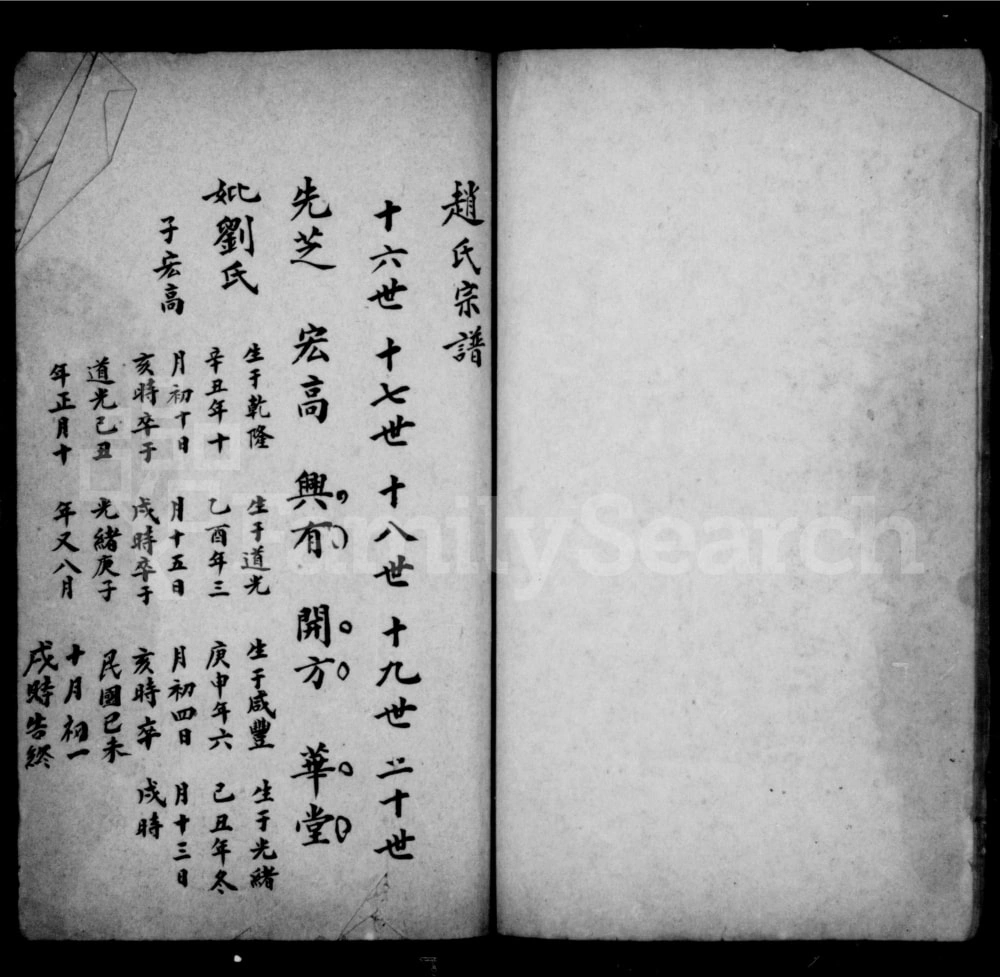 趙氏宗譜
十六世 十七世 十八世 十九世 二十世
先芝 宏高 興有 開方 華堂
妣劉氏
子宏高
生于乾隆 生于道光 生于咸豐 生于光緒
辛丑年十 乙酉年三 庚申年六 己丑年冬
月初十日 月十五日 月初四日 月十三日
亥時卒于 戌時卒于 亥時卒 戌時
道光己丑 光緒庚子 民國已未
年正月十 年又八月 十月初一
戌時告終
FamilySearch